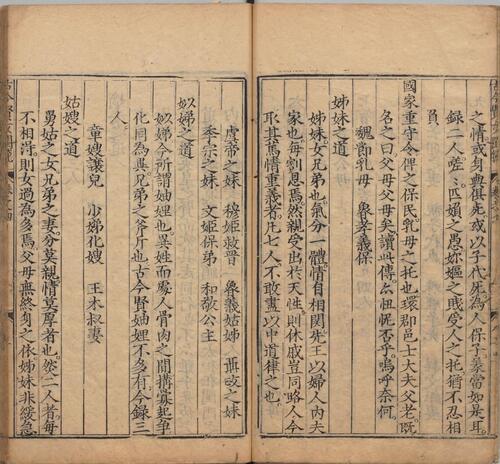 之情或身與俱死或以子代死為人保子豪當如是耳
錄二人嗟嗟臣嬪之愚妳嫗之賤受人之托猶不忍相
負
國家重守令俾之保民乳母之托也環郡邑士大夫父老既
名之曰父母父母矣讀此傳亦忸怩否乎嗚呼奈何
魏節乳母　魯孝義保
姊妹之道
姊妹女兄弟也氣分一體情自相關先王以婦人內夫
家也每割恩焉然親受出於天性則休戚豈同路人今
取其篤情重義者凡七人不敢盡以中道律之也
虞帝之妹　穆姬救晉　魯義姑姊　聶政之姊
季宗之妹　文姬保弟　和敬公主
姒娣之道
姒娣今所謂妯娌也異姓而處人骨肉之間搆寡起爭
化同為異兄弟之斧斤也古今賢妯娌不多有今錄三
人
章嫂讓兒　少娣化嫂　王木叔妻
姑嫂之道
舅姑之女兄弟之妻分莫親情莫厚者也然二人者每
不相得則女過為多焉父母無終身之依姊妹非緩急